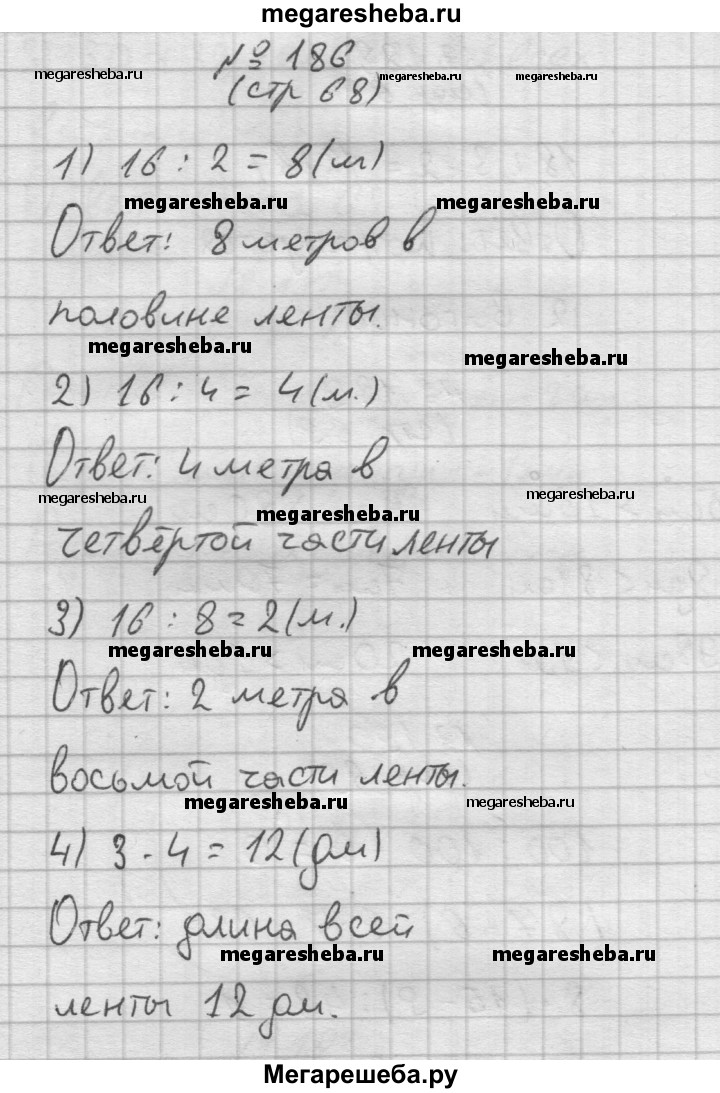 megaresheba.ru
№ 186
megaresheba.ru megaresheba.ru megaresheba.ru
(стр 68)
1) 16 : 2 = 8(м)
megaresheba.ru megaresheba.ru
Ответ: 8 метров в
половине ленты.
megaresheba.ru megaresheba.ru
2) 16 : 4 = 4(м.)
Ответ: 4 метра в
megaresheba.ru megaresheba.ru megaresheba.ru
четвёртой части ленты
3) 16 : 8 = 2(м.)
megaresheba.ru megaresheba.ru
Ответ: 2 метра в
восьмой части ленты.
megaresheba.ru megaresheba.ru
4) 3 · 4 = 12(дм)
Ответ: длина всей
megaresheba.ru megaresheba.ru
ленты 12 дм.
Мегарешеба.ру